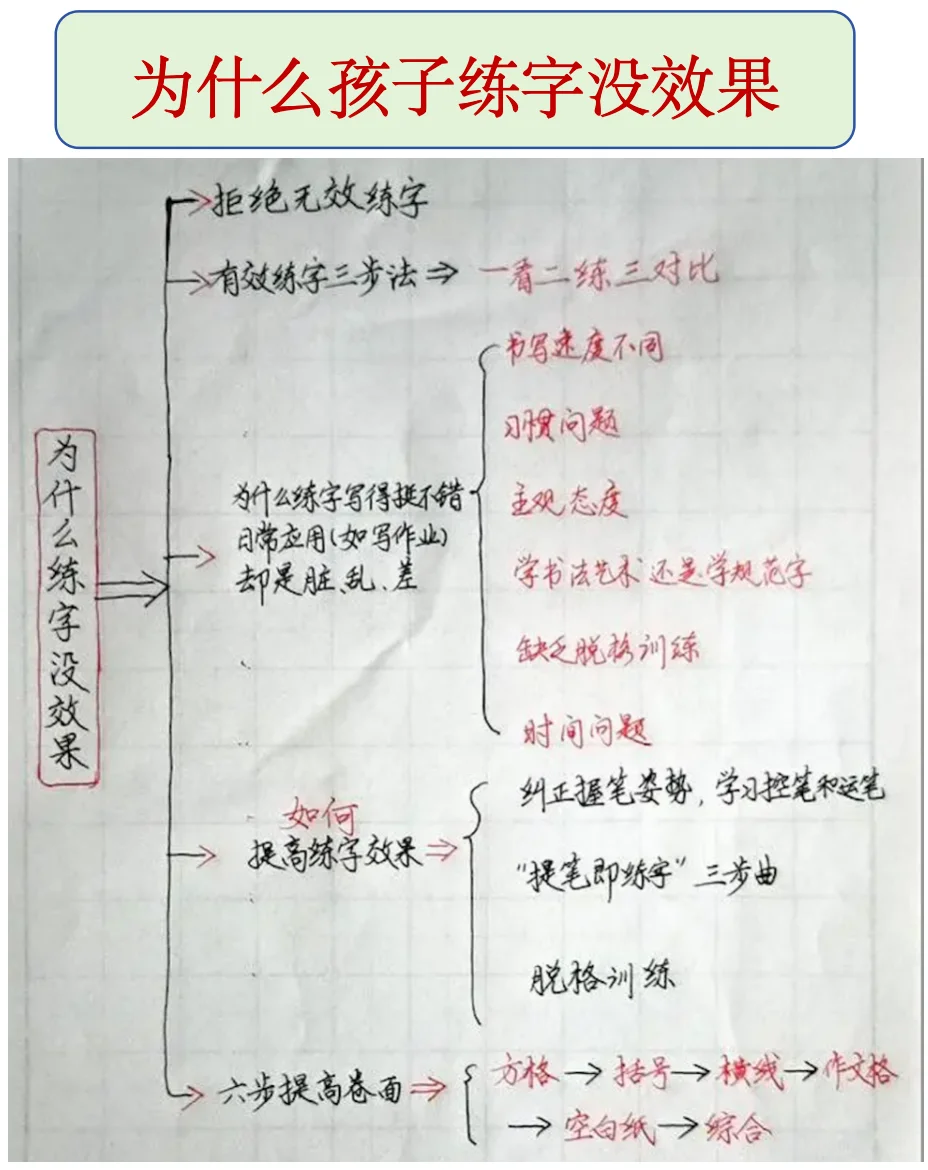 为什么孩子练字没效果
为什么练字没效果
→拒绝无效练字
→有效练字三步法⇒一看二练三对比
为什么练字写得挺不错
日常应用(如写作业)
却是脏、乱、差
书写速度不同
习惯问题
主观态度
学书法艺术还是学规范字
缺乏脱格训练
时间问题
如何
提高练字效果⇒
纠正握笔姿势,学习控笔和运笔
“提笔即练字”三步曲
脱格训练
→六步提高卷面⇒
方格→括号→横线→作文格
→空白纸→综合